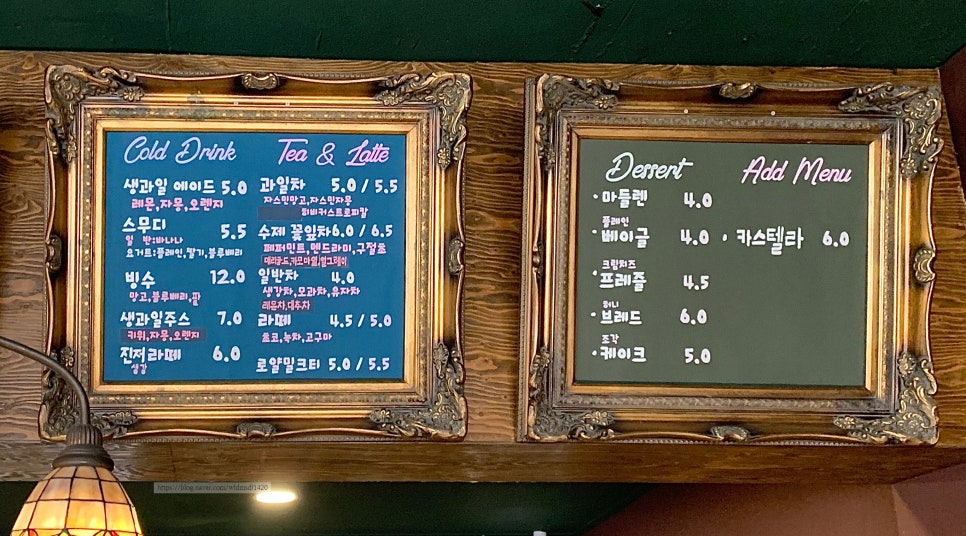 Cold Drink
생과일 에이드 5.0
레몬,자몽,오렌지
스무디 5.5
일 반:바나나
요거트:플레인,딸기,블루베리
빙수 12.0
망고,블루베리,팥
생과일주스 7.0
키위,자몽,오렌지
진저라떼 6.0
생강
Tea & Latte
과일차 5.0 / 5.5
자스민망고,자스민자몽
히비커스트로피칼
수제 꽃잎차 6.0 / 6.5
페퍼민트,맨드라미,구절초
메리골드,카모마일,얼그레이
일반차 4.0
생강차,모과차,유자차
레몬차,대추차
라떼 4.5 / 5.0
초코,녹차,고구마
로얄밀크티 5.0 / 5.5
Dessert
·마들렌 4.0
플레인
·베이글 4.0
크림치즈
·프레즐 4.5
허니
·브레드 6.0
조각
·케이크 5.0
Add Menu
·카스텔라 6.0